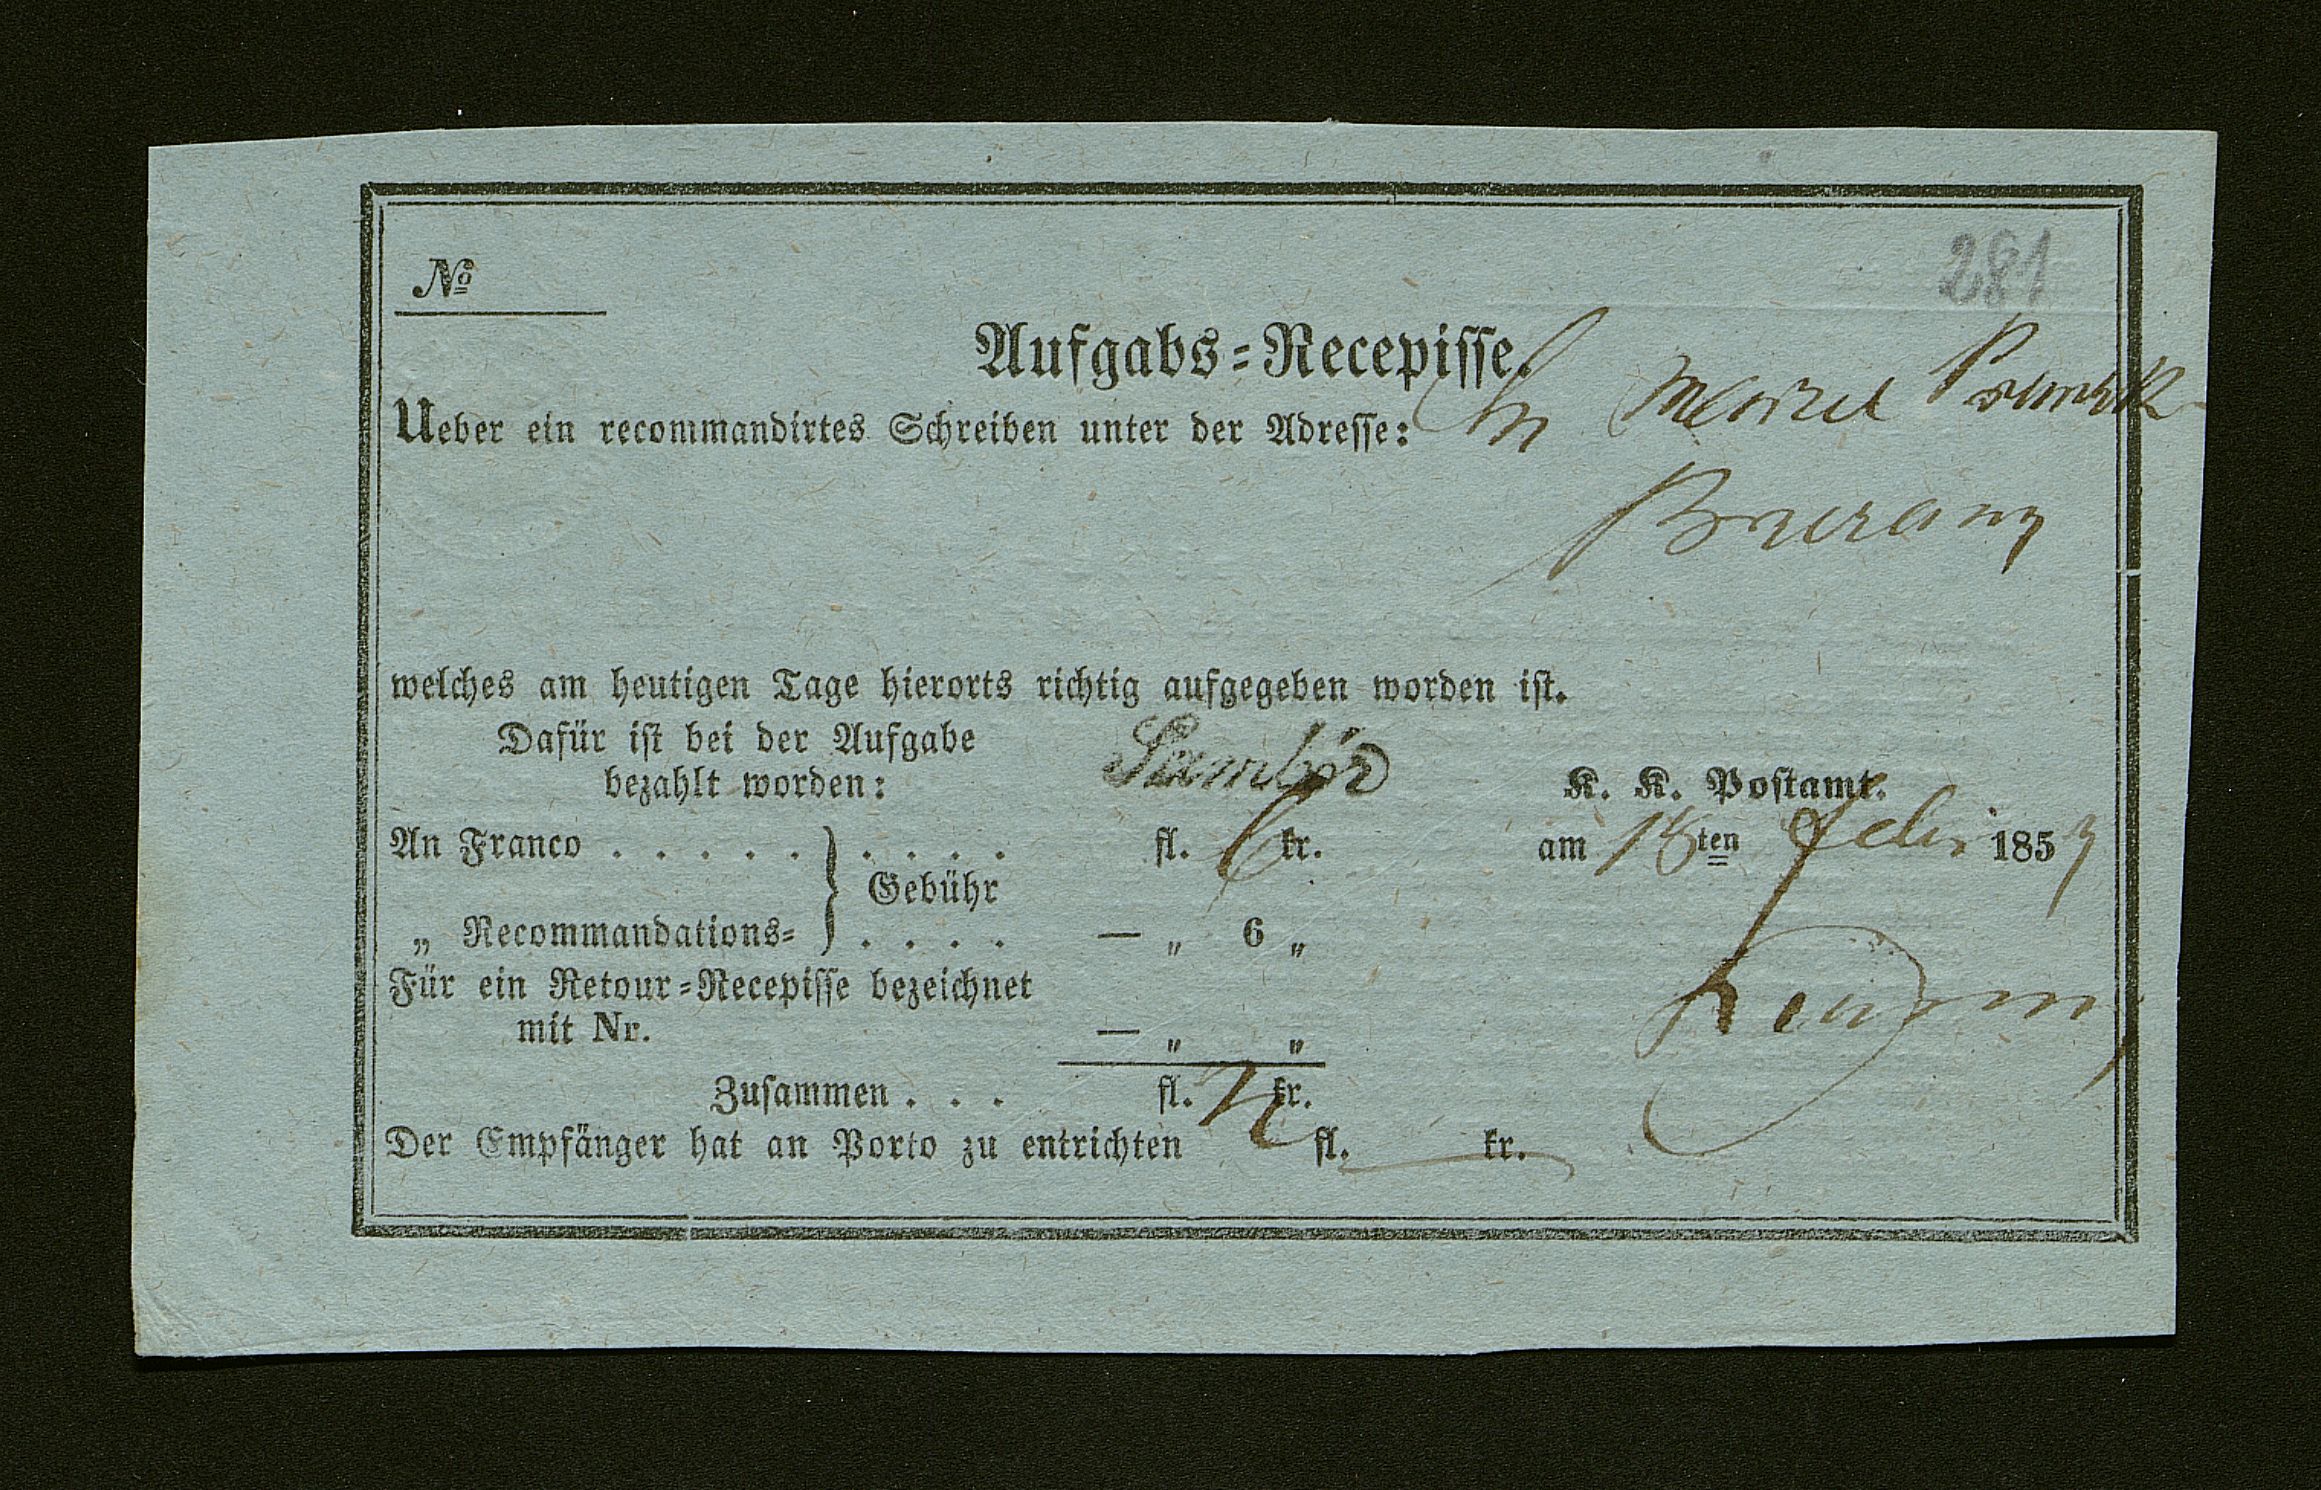 №
281
Aufgabs=Recepisse.
Ueber ein recommandirtes Schreiben unter der Adresse:
welches am heutigen Tage hierorts richtig aufgegeben worden ist.
Dafür ist bei der Aufgabe
bezahlt worden:
Sambor
K. K. Postamt.
An Franco . . . . . } . . . . fl. 6 kr.
am ten Febr 185
Gebühr
„ Recommandations= } . . . . — „ 6 „
Für ein Retour=Recepisse bezeichnet
mit Nr. — „ „
Zusammen . . . fl. kr.
Der Empfänger hat an Porto zu entrichten fl. kr.